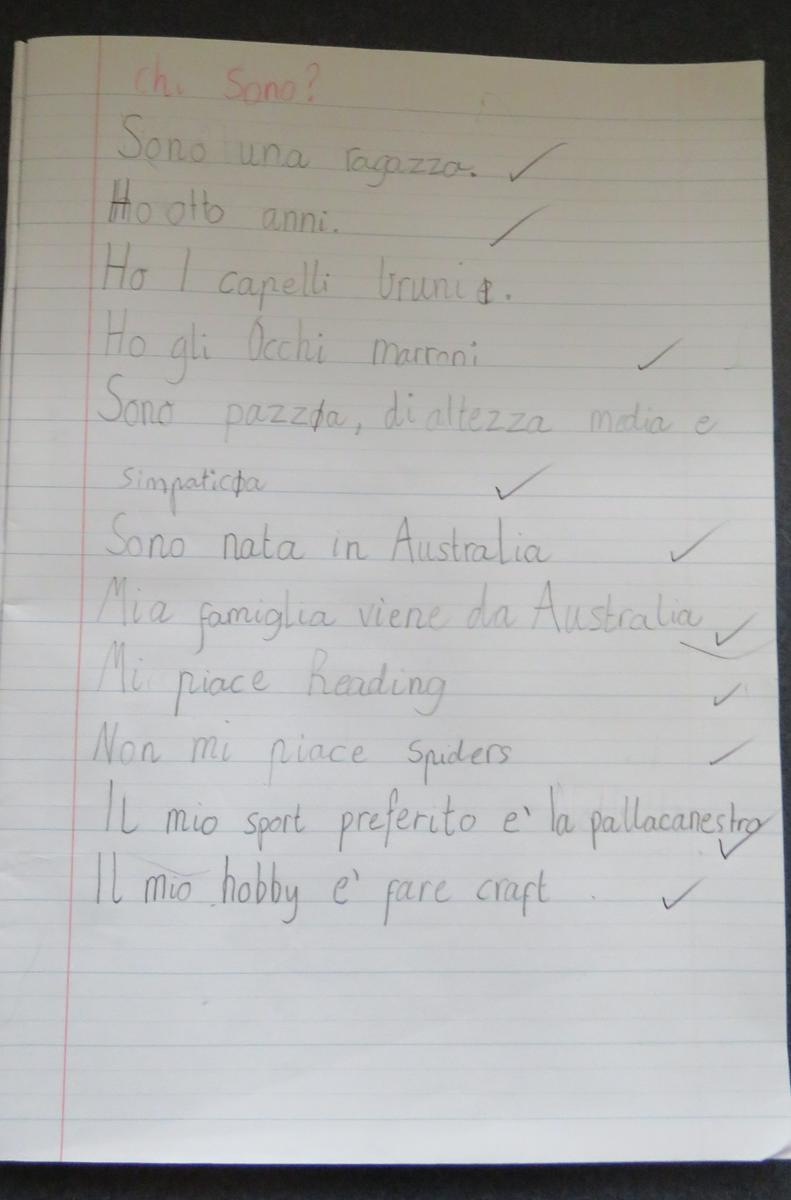 Chi Sono?
Sono una ragazza.
Ho otto anni.
Ho I capelli bruni.
Ho gli Occhi marroni
Sono pazza, di altezza media e
simpatica
Sono nata in Australia
Mia famiglia viene da Australia
Mi piace Reading
Non mi piace Spiders
Il mio sport preferito e' la pallacanestro
Il mio hobby e' fare craft.